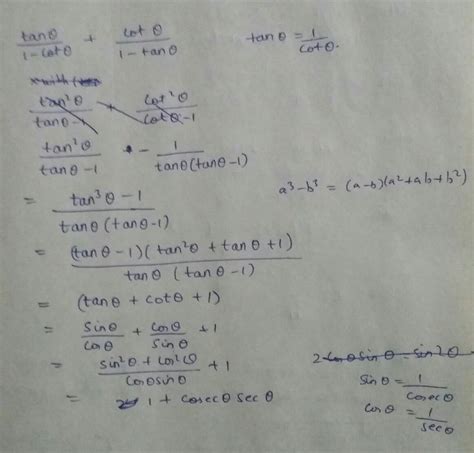 tanθ/(1-cotθ) + cotθ/(1-tanθ)    tanθ = 1/cotθ.
tan²θ/(tanθ-1) + cot²θ/(cotθ-1)
tan²θ/(tanθ-1) - 1/(tanθ(tanθ-1))
a³-b³ = (a-b)(a²+ab+b²)
= (tan³θ-1)/(tanθ(tanθ-1))
= (tanθ-1)(tan²θ+tanθ+1)/(tanθ(tanθ-1))
= (tanθ+cotθ+1)
= sinθ/cosθ + cosθ/sinθ +1
= (sin²θ+cos²θ)/(cosθsinθ) +1    2cosθsinθ = sin2θ
sinθ = 1/cosecθ
= 1 + cosecθ secθ
cosθ = 1/secθ